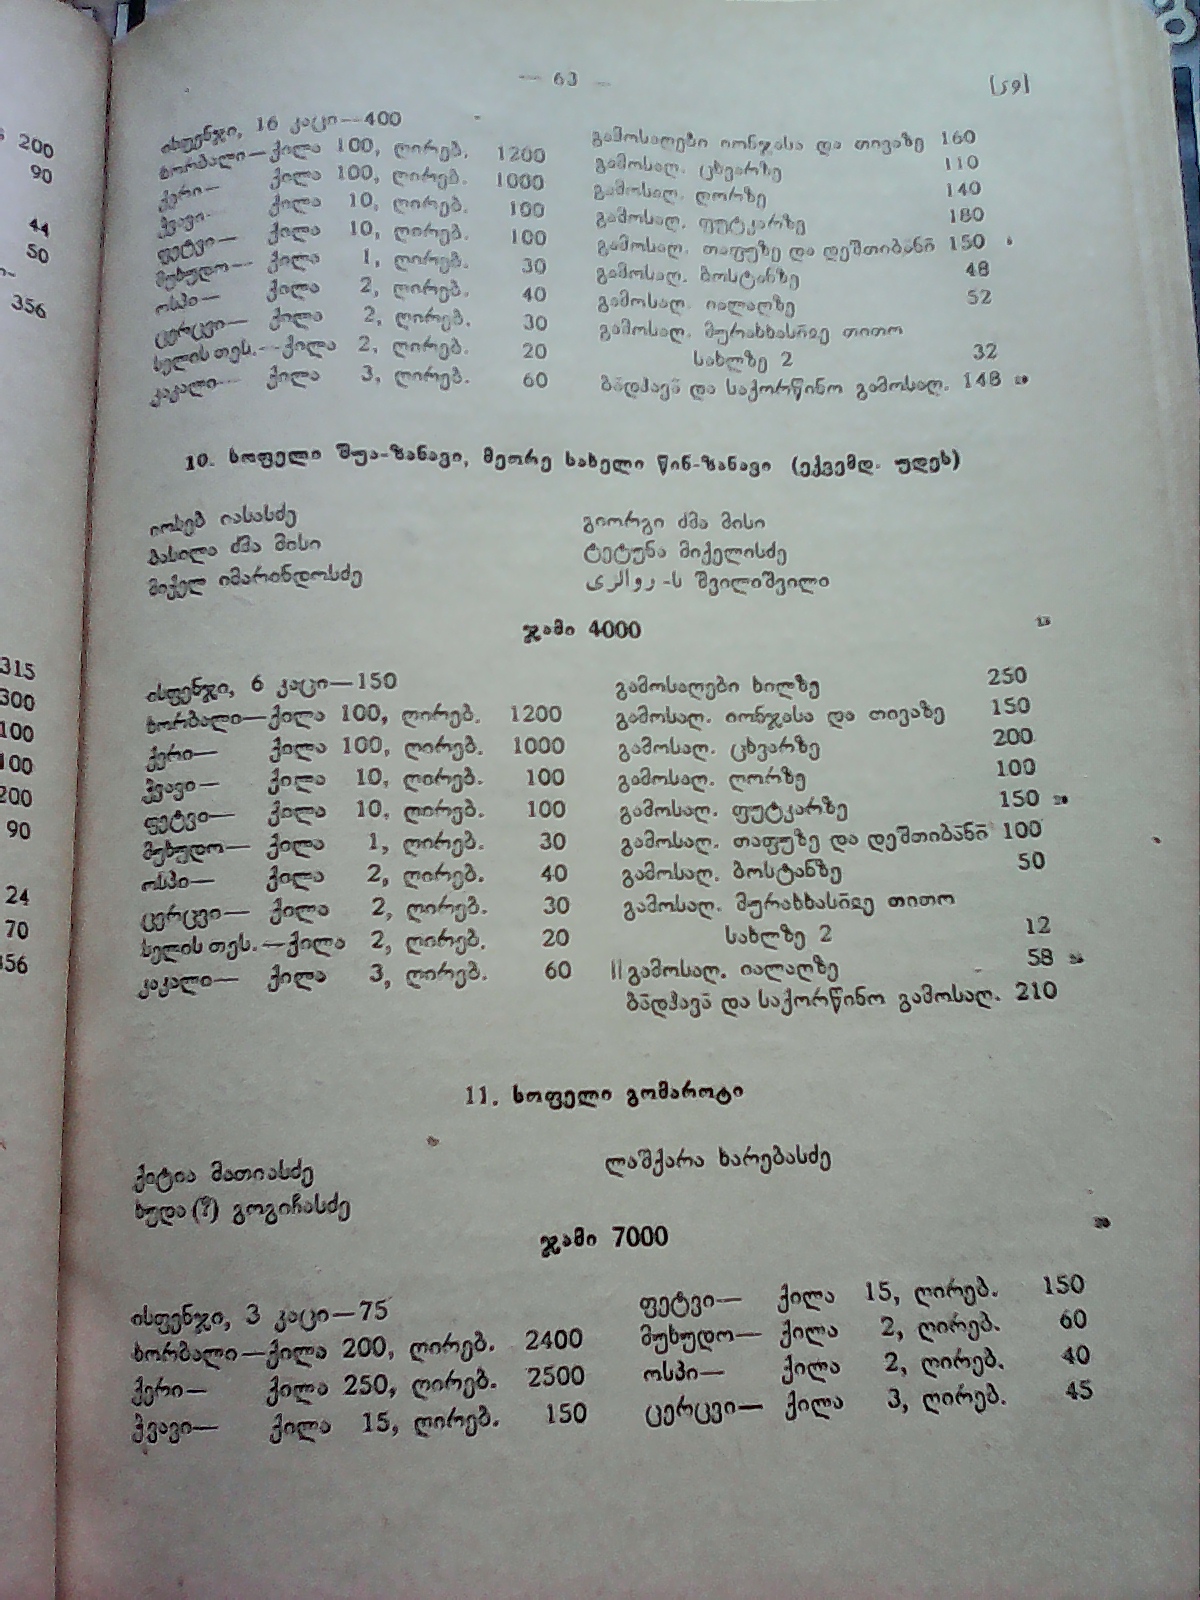 — 63 —
ისფენჯი, 16 კაცი—400
ხორბალი—ქილა 100, ღირებ. 1200
ქერი— ქილა 100, ღირებ. 1000
ჭვავი— ქილა 10, ღირებ. 100
ფეტვი— ქილა 10, ღირებ. 100
მუხუდო— ქილა 1, ღირებ. 30
ოსპი— ქილა 2, ღირებ. 40
ცერცვი— ქილა 2, ღირებ. 30
სელის თეს.—ქილა 2, ღირებ. 20
კაკალი— ქილა 3, ღირებ. 60
გამოსაღები იონჯასა და თივაზე 160
გამოსაღ. ცხვარზე 110
გამოსაღ. ღორზე 140
გამოსაღ. ფუტკარზე 180
გამოსაღ. თაფუზე და დეშთიბანი̄ 150
გამოსაღ. ბოსტანზე 48
გამოსაღ. იალაღზე 52
გამოსაღ. თითო
სახლზე 2 32
ბა̄დჰავა̄ და საქორწინო გამოსაღ. 148 20
10. სოფელი შუა-ზანავი, მეორე სახელი წინ-ზანავი (ექვემდ. უდეს)
იოსებ იასასძე
ბასილა ძმა მისი
მიქელ იმარინდოსძე
გიორგი ძმა მისი
ტეტუნა მიქელისძე
روالزى-ს შვილიშვილი
ჯამი 4000
ისფენჯი, 6 კაცი—150
ხორბალი—ქილა 100, ღირებ. 1200
ქერი— ქილა 100, ღირებ. 1000
ჭვავი— ქილა 10, ღირებ. 100
ფეტვი— ქილა 10, ღირებ. 100
მუხუდო— ქილა 1, ღირებ. 30
ოსპი— ქილა 2, ღირებ. 40
ცერცვი— ქილა 2, ღირებ. 30
სელის თეს.—ქილა 2, ღირებ. 20
კაკალი— ქილა 3, ღირებ. 60
გამოსაღები ხილზე 250
გამოსაღ. იონჯასა და თივაზე 150
გამოსაღ. ცხვარზე 200
გამოსაღ. ღორზე 100
გამოსაღ. ფუტკარზე 150 20
გამოსაღ. თაფუზე და დეშთიბა̄ნი̄ 100
გამოსაღ. ბოსტანზე 50
გამოსაღ. თითო
სახლზე 2 12
||გამოსაღ. იალაღზე 58
ბა̄დჰავა̄ და საქორწინო გამოსაღ. 210
11. სოფელი გომაროტი
ქიტია მათიასძე
ხუდა (?) გოგიჩასძე
ლაშქარა ხარებასძე
ჯამი 7000
ისფენჯი, 3 კაცი—75
ხორბალი—ქილა 200, ღირებ. 2400
ქერი— ქილა 250, ღირებ. 2500
ჭვავი— ქილა 15, ღირებ. 150
ფეტვი— ქილა 15, ღირებ. 150
მუხუდო— ქილა 2, ღირებ. 60
ოსპი— ქილა 2, ღირებ. 40
ცერცვი— ქილა 3, ღირებ. 45
200
90
44
50
356
315
300
100
100
200
90
24
70